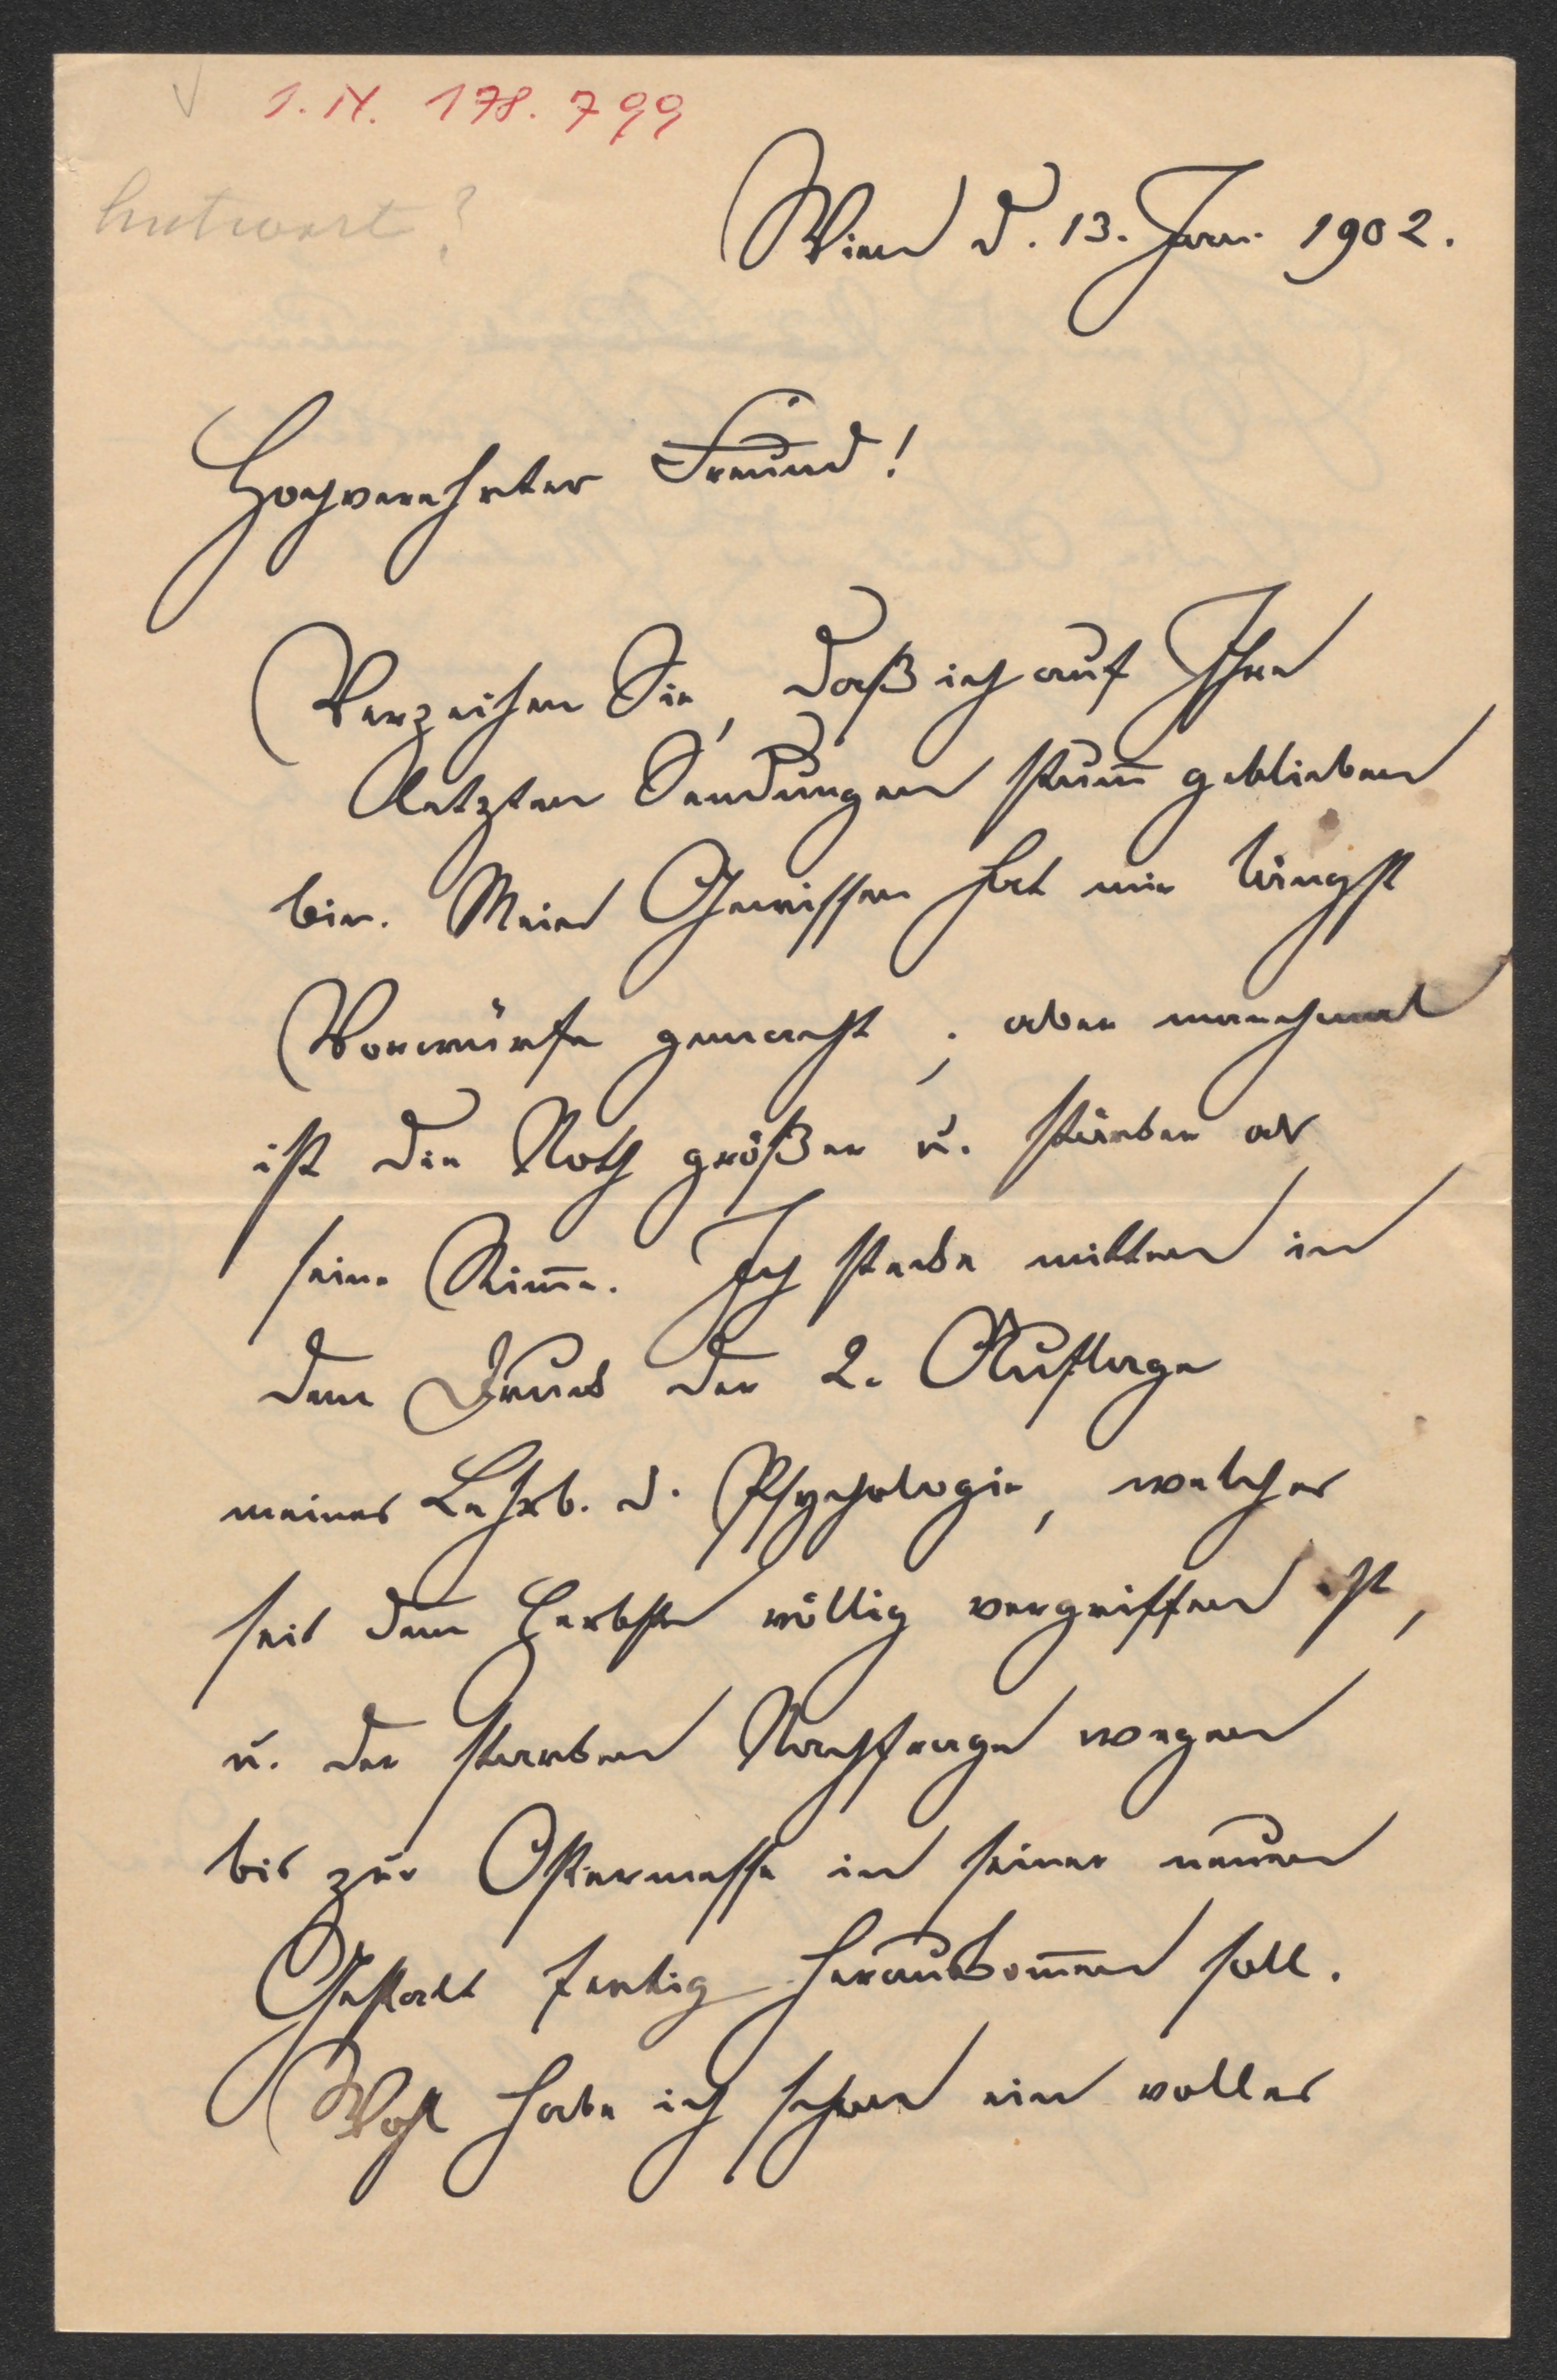 I. N. 178.799
Antwort?
Wien d. 13. Jan. 1902.
Hochverehrter Freund!
Verzeihen Sie, daß ich auf Ihre
letzten Sendungen stum̅ geblieben
bin. Mein Gewissen hat mir längst
Vorwürfe gemacht; aber manchmal
ist die Noth größer u. stärker als
seine Stim̅e. Ich stecke mitten in
dem Druck der 2. Auflage
meines Lehrb. d. Psychologie, welches
seit dem Herbste völlig vergriffen ist,
u. der starken Nachfrage wegen
bis zur Ostermesse in seiner neuen
Gestalt fertig herauskom̅en soll.
Wohl habe ich schon ein volles